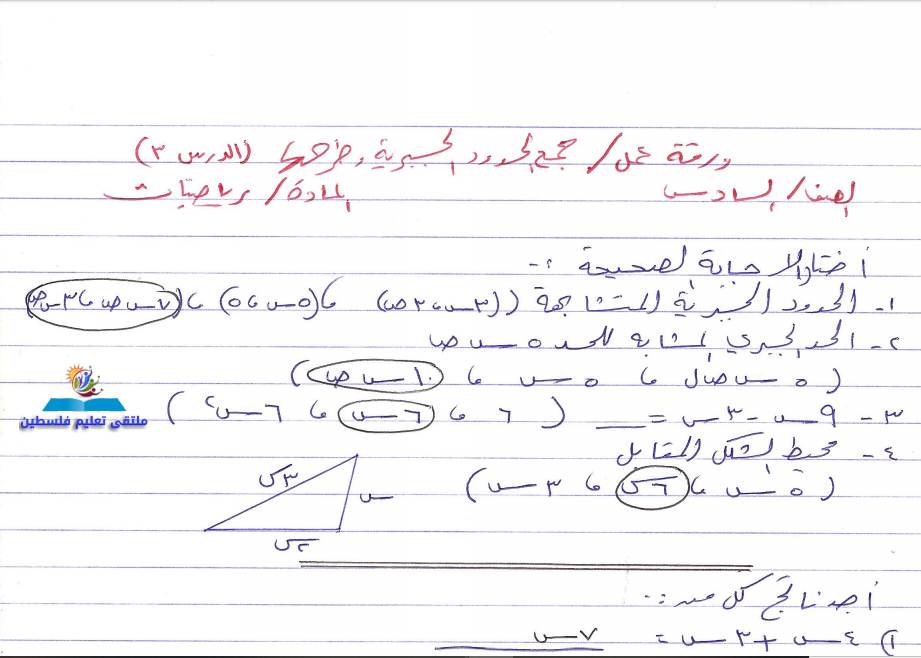 ورقة عمل / جمع الحدود الجبرية وطرحها (الدرس ٣)
الصف / السادس المادة / رياضيات
أختار الاجابة الصحيحة :-
١- الحدود الجبرية المتشابهة ((٣س ، ٢ص) ، (٥س ، ٥) ، (٧س ص ، ٣س ص))
٢- الحد الجبري المشابه للحد ٥ س ص
(٥ س ص ل ، ٥ س ، ١٠ س ص)
٣- ٩س - ٣س = __ (٦ ، ٦س ، ٦س٢)
٤- محيط الشكل المقابل
(٥س ، ٦س ، ٣س)
٣س
س
٢س
ملتقى تعليم فلسطين
أجد ناتج كل من :-
١) ٤س + ٣س = ٧س